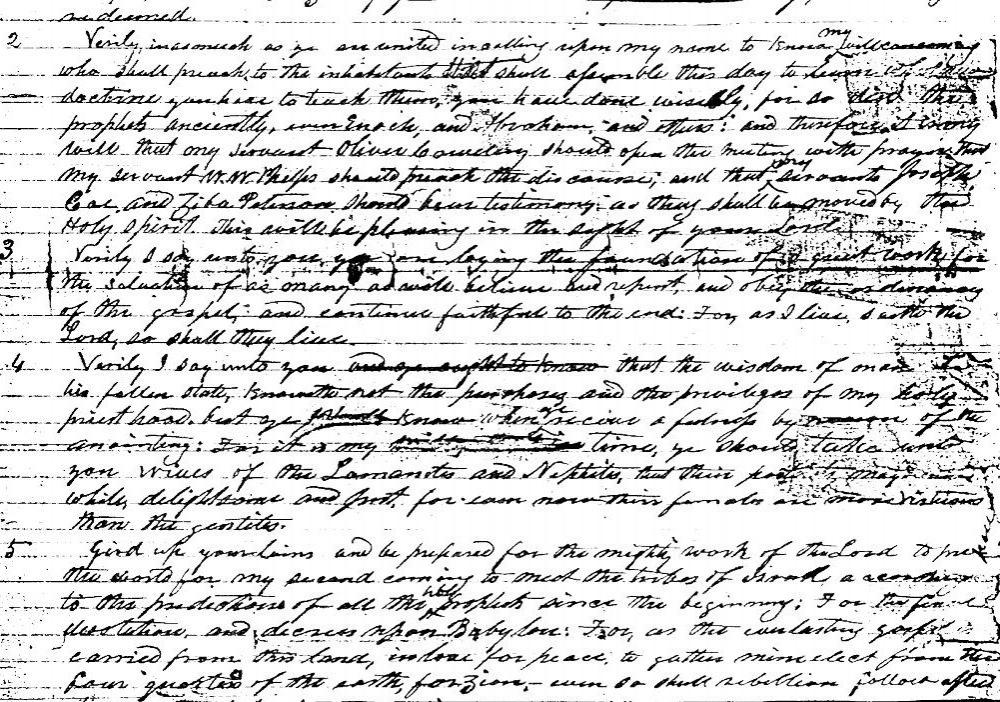 redeemed.
2 Verily, inasmuch as ye are united in calling upon my name to know my will concerning
who shall preach to the inhabitants that shall assemble this day to learn what new
doctrine you have to teach them, you have done wisely, for so did the
prophets anciently, even Enoch, and Abraham, and others: and therefore, it is my
will that my servant Oliver Cowdery should open the meeting with prayer; that
my servant W. W. Phelps should preach the discourse; and that my servants Joseph
Coe and Ziba Peterson should bear testimony as they shall be moved by the
Holy Spirit. This will be pleasing in the sight of your Lord.
3 Verily I say unto you, ye are laying the foundation of a great work for
the salvation of as many as will believe and repent, and obey the ordinances
of the gospel, and continue faithful to the end: For, as I live, saith the
Lord, so shall they live.
4 Verily I say unto you and ye ought to know that the wisdom of man in
his fallen state, knoweth not the purposes and the privileges of my holy
priesthood. but ye shall know when ye receive a fulness by reason of the
anointing: For it is my will, that in time, ye should take unto
you wives of the Lamanites and Nephites, that their posterity may become
white, delightsome and just, for even now their females are more virtuous
than the gentiles.
5 Gird up your loins and be prepared for the mighty work of the Lord to prepare
the world for my second coming to meet the tribes of Israel, according
to the predictions of all the holy prophets since the beginning; For the final
desolation, and decrees upon Babylon: For, as the everlasting gospel is
carried from this land, in love for peace, to gather mine elect from the
four quarters of the earth, for Zion,— even so shall rebellion follow after